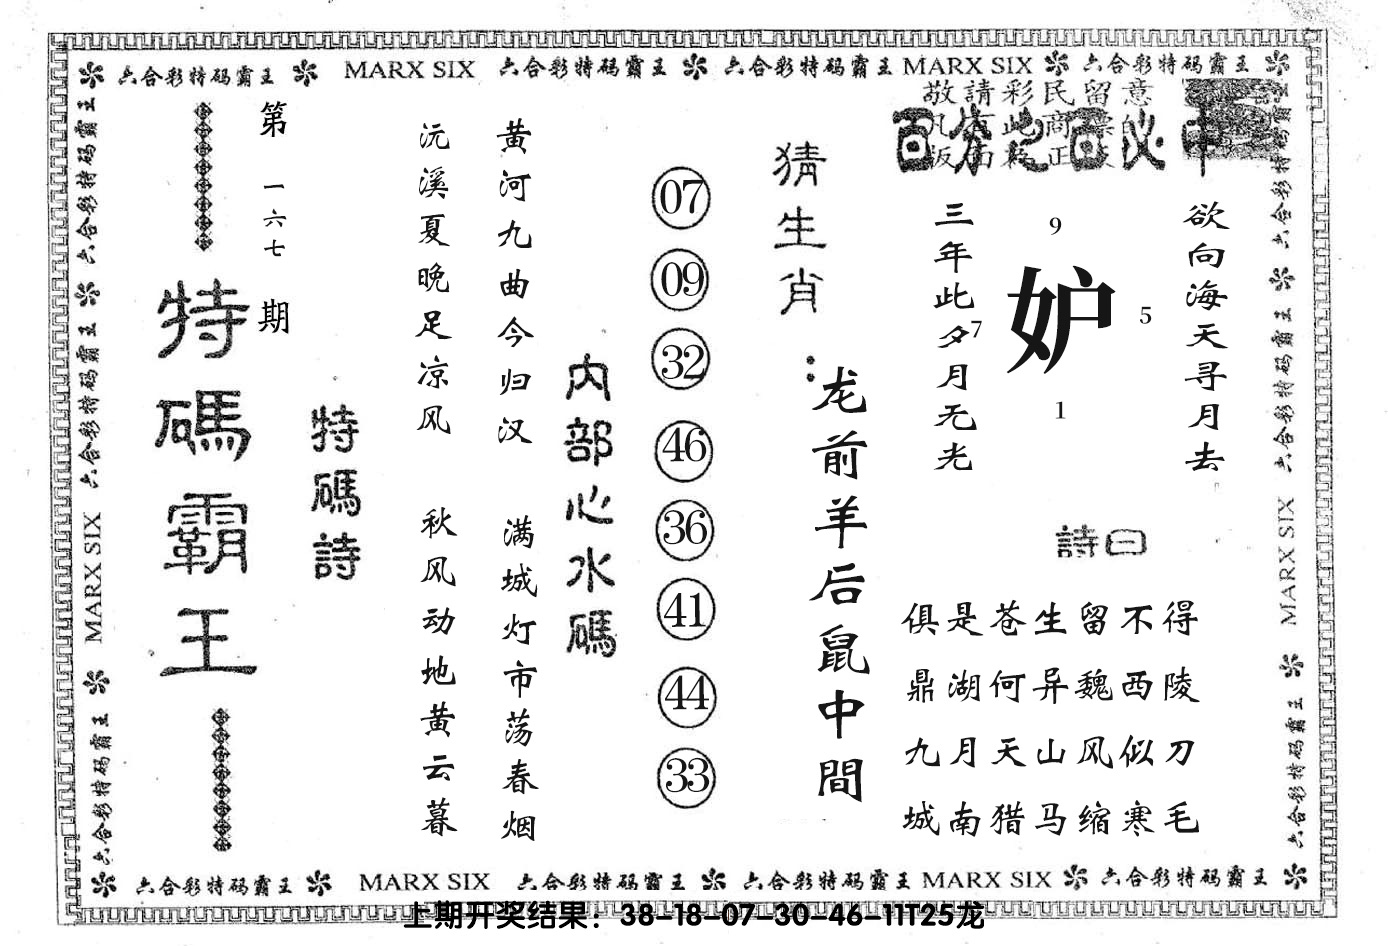 六合彩特码霸王 MARX SIX 六合彩特码霸王 六合彩特码霸王 MARX SIX 六合彩特码霸王
敬請彩民留意
百分之百必中
欲向海天寻月去
三年此夕月无光
9
妒
7
5
1
詩曰
俱是苍生留不得
鼎湖何异魏西陵
九月天山风似刀
城南猎马缩寒毛
猜生肖：
龙前羊后鼠中間
07
09
32
46
36
41
44
33
内部心水碼
黄河九曲今归汉
满城灯市荡春烟
沅溪夏晚足凉风
秋风动地黄云暮
特碼詩
第一六七期
特碼霸王
六合彩特码霸王 六合彩特码霸王 MARX SIX 六合彩特码霸王
六合彩特码霸王 六合彩特码霸王 MARX SIX 六合彩特码霸王
六合彩特码霸王 MARX SIX 六合彩特码霸王 六合彩特码霸王 MARX SIX 六合彩特码霸王
上期开奖结果：38-18-07-30-46-11T25龙